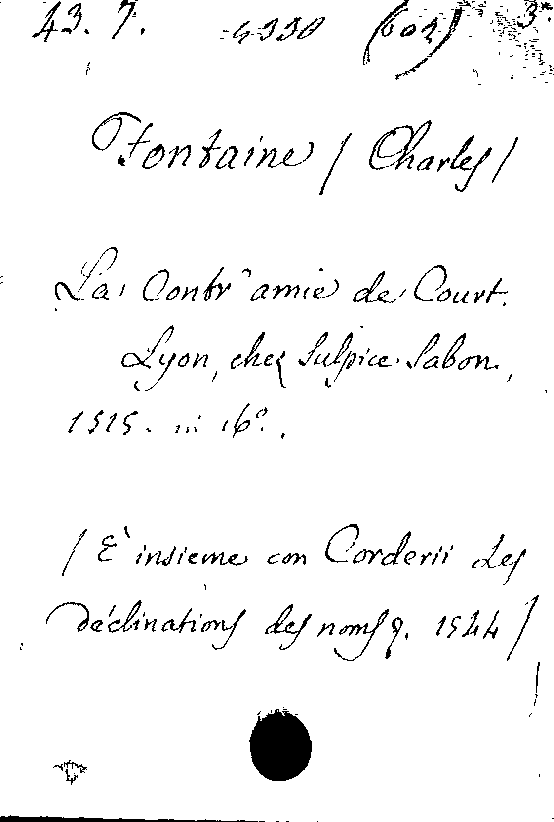 43. 7. 4330 (602) 3.
Fontaine / Charles /
La Contr'amie de Court.
Lyon, chez Sulpice Sabon,
1515. in 16º.
/ E' insieme con Corderii Les
déclinations des noms q. 1544 /